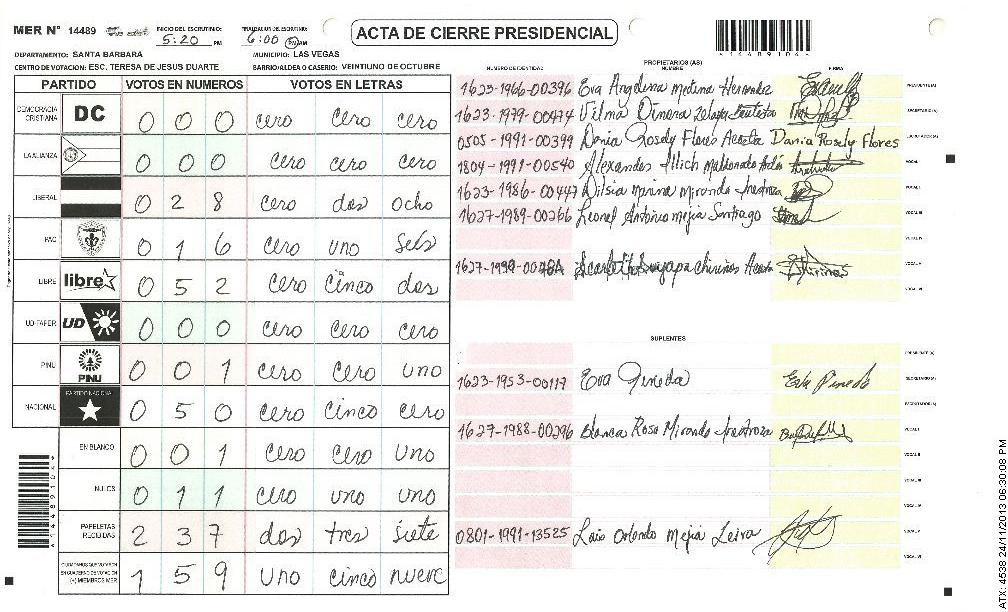 MER N° 14489
INICIO DEL ESCRUTINIO: 5:20 PM
FINALIZACION DEL ESCRUTINIO: 6:00 PM AM
ACTA DE CIERRE PRESIDENCIAL
DEPARTAMENTO: SANTA BARBARA
MUNICIPIO: LAS VEGAS
CENTRO DE VOTACION: ESC. TERESA DE JESUS DUARTE
BARRIO/ALDEA O CASERIO: VEINTIUNO DE OCTUBRE
PARTIDO VOTOS EN NUMEROS VOTOS EN LETRAS
DEMOCRACIA CRISTIANA DC 0 0 0 cero cero cero
LA ALIANZA 0 0 0 cero cero cero
LIBERAL 0 2 8 cero dos ocho
PAC 0 1 6 cero uno seis
LIBRE libre 0 5 2 cero cinco dos
UD-FAPER UD 0 0 0 cero cero cero
PINU PINU 0 0 1 cero cero uno
NACIONAL PARTIDO NACIONAL 0 5 0 cero cinco cero
EN BLANCO 0 0 1 cero cero uno
NULOS 0 1 1 cero uno uno
PAPELETAS RECIBIDAS 2 3 7 dos tres siete
CIUDADANOS QUE VOTARON EN CUADERNO DE VOTACION (+) MIEMBROS MER 1 5 9 uno cinco nueve
PROPIETARIOS (AS)
NUMERO DE IDENTIDAD NOMBRE FIRMA
1623-1966-00396 Eva Angelina Medina Hernandez PRESIDENTE (A)
1623-1979-00474 Vilma Dinora Zelaya Bautista SECRETARIO (A)
0505-1991-00399 Dania Rosely Flores Acosta Dania Rosely Flores ESCRUTADOR (A)
1804-1991-00540 Alexander Illich Maldonado VOCAL I
1623-1986-00447 Dilsia Marina Miranda Inestroza
1627-1989-00266 Leonel Antonio Mejia Santiago
Scarleth Suyapa Chirinos Acosta
SUPLENTES
PRESIDENTE (A)
1623-1953-00117 Eva Pineda Eva Pineda SECRETARIO (A)
ESCRUTADOR (A)
1627-1988-00296 Blanca Rosa Miranda Inestroza VOCAL I
VOCAL II
VOCAL III
VOCAL IV
0801-1991-13525 Luis Orlando Mejia Leiva VOCAL V
VOCAL VI
ATX: 4538 24/11/2013 06:30:08 PM